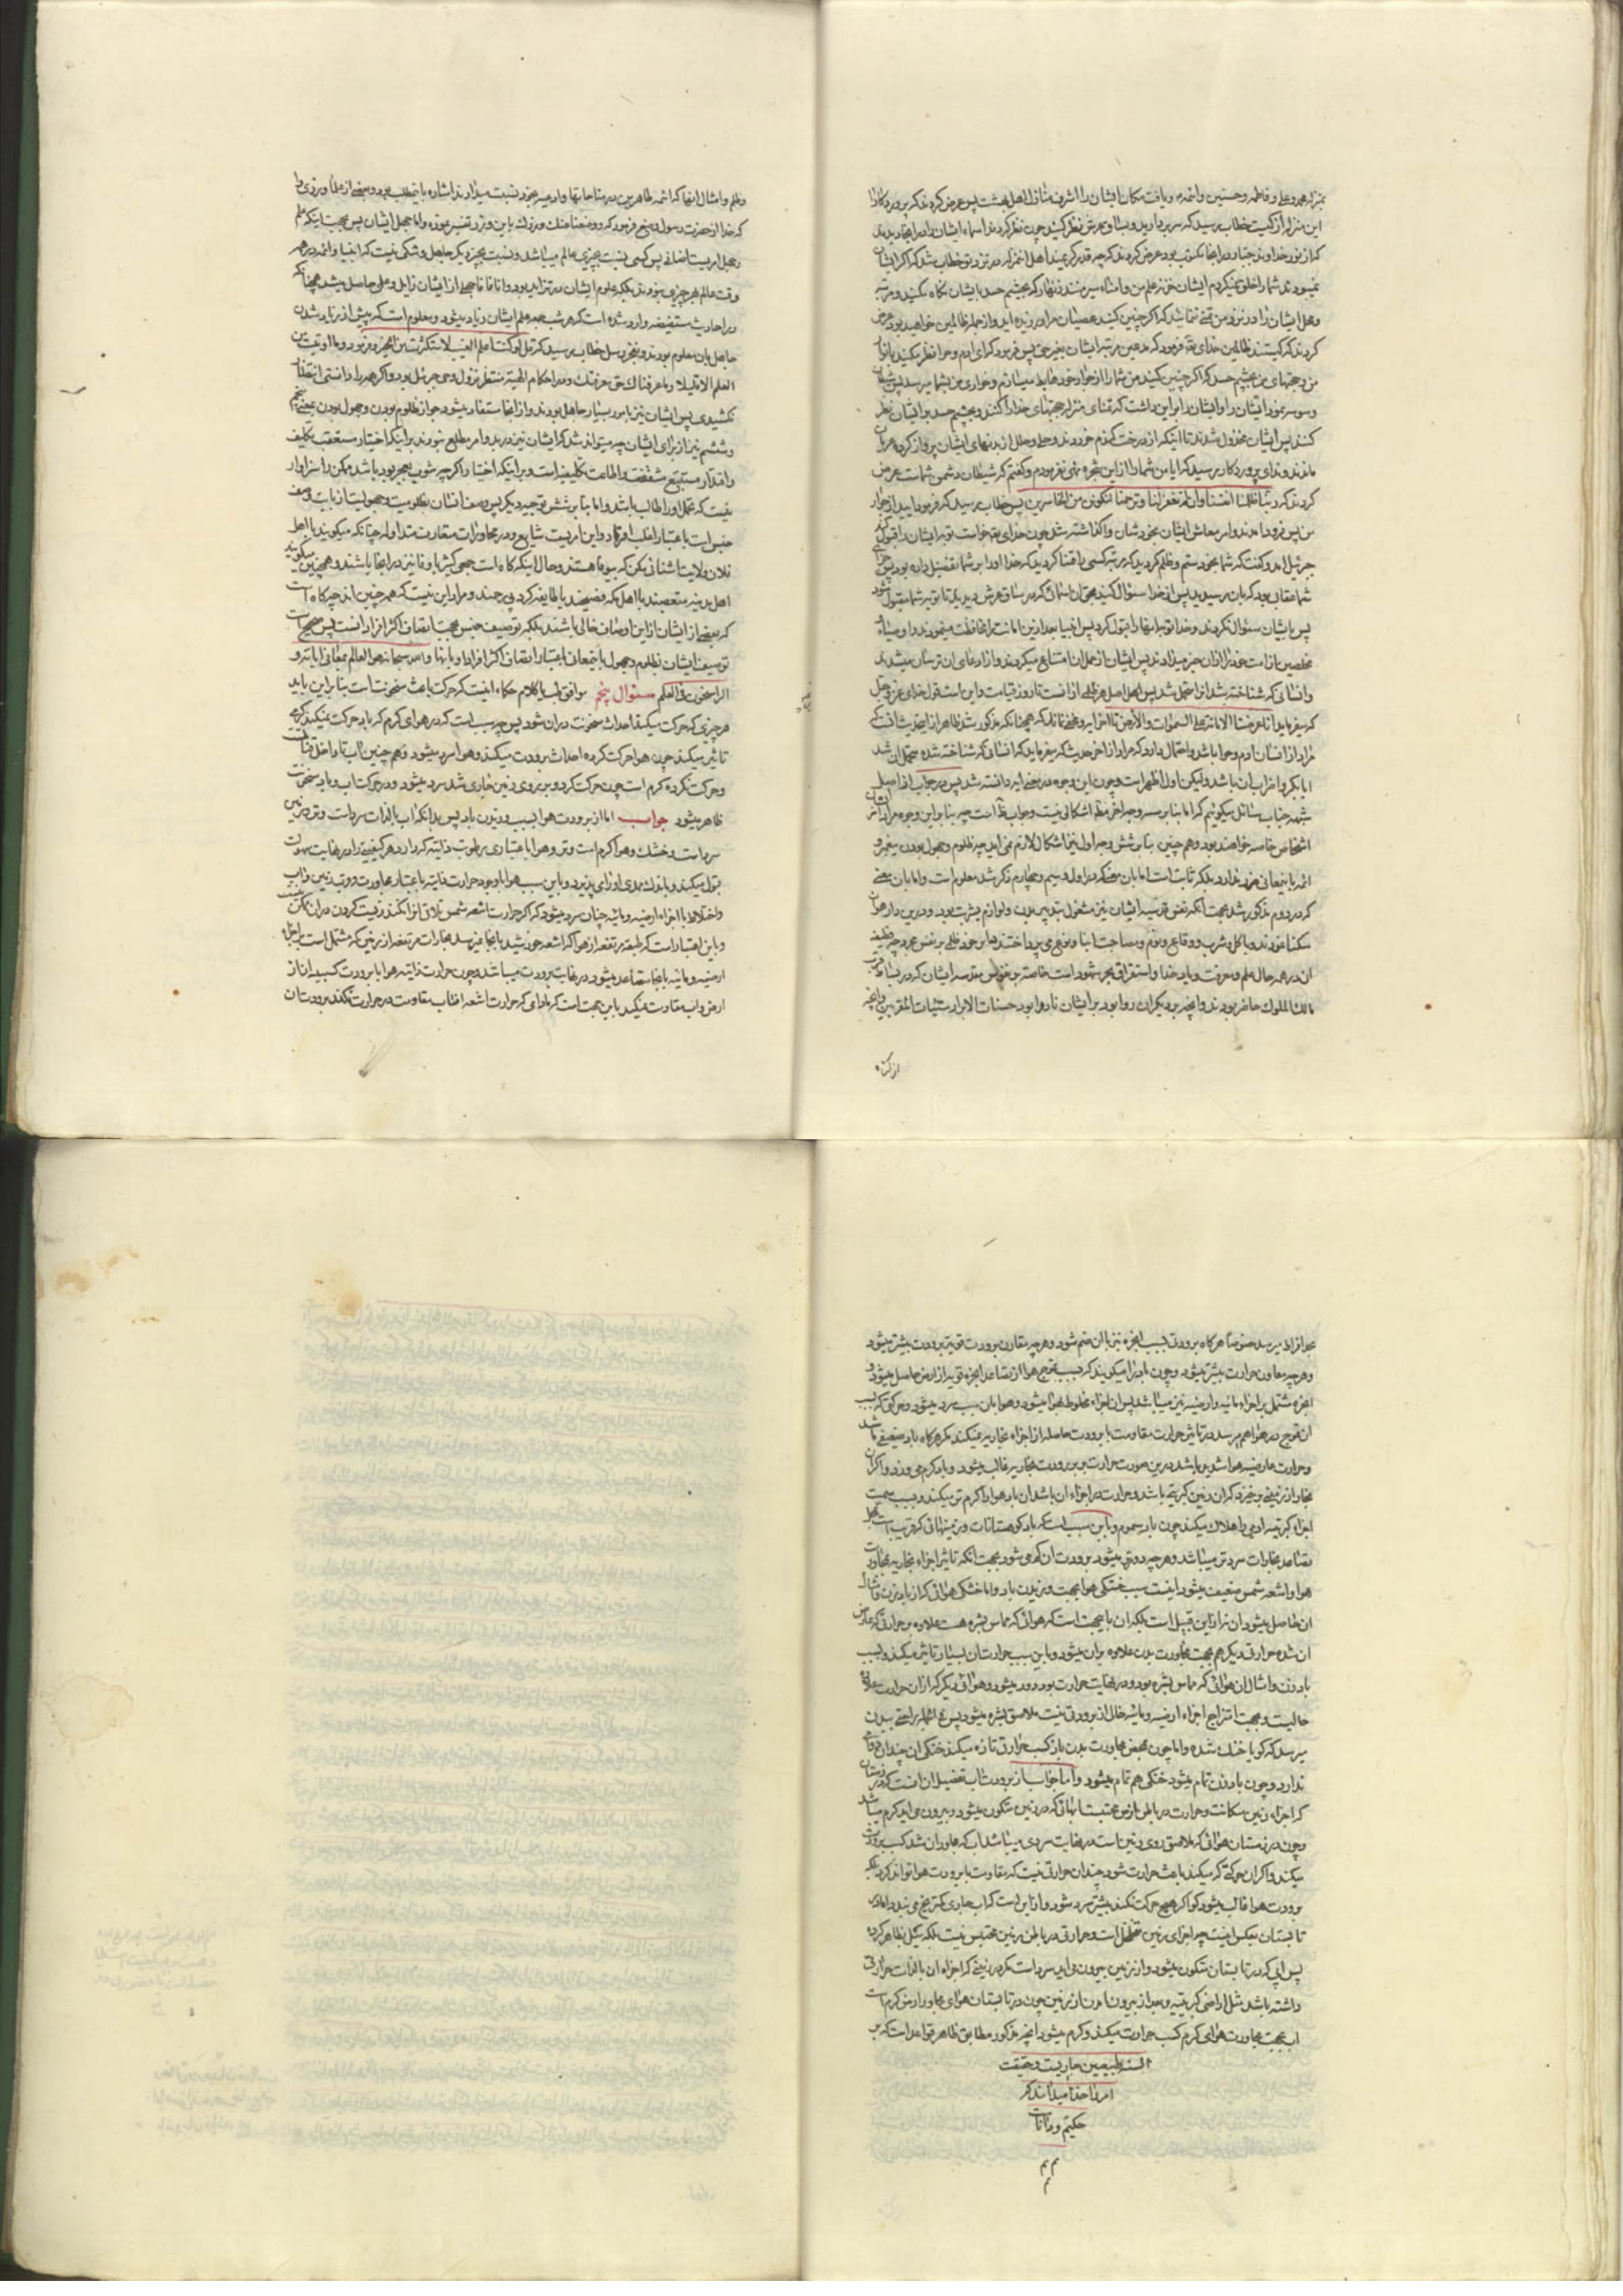 بمنزله محمد و علی و فاطمه و حسنین و ائمه و یافت مکان ایشان را اشرف منازل اهل بهشت پس عرض کردند که پروردگارا
این منزله از کیست خطاب رسید که سر بردارید و بساق عرش نظر کنید چون نظر کردند اسماء ایشان را در انجا دیدند
که از نور خداوند جبار در انجا مکتوب بود عرض کردند که چه قدر گرمیند اهل این منزله در نزد تو خطاب شد که اگر ایشان
نمیبودند شما را خلق نمیکردم ایشان خزنه علم من و امناء سر منند زنهار که بچشم حسد بایشان نگاه نکنید و مرتبه
و محل ایشان را در نزد من تمنی ننمائید که اگر چنین کنید عصیان مرا ورزیده اید و از جمله ظالمین خواهید بود عرض
کردند که کیستند ظالمین خدای تعالی فرمود که مدعین مرتبه ایشان بغیر حق پس فرمود که ای ادم و حوا نظر مکنید بانوار
من و حجتهای من بچشم حسد که اگر چنین کنید من شما را از جوار خود هابط میسازم و خواری من بشما میرسد پس شیطان
وسوسه نمود ایشان را و ایشان را بر این داشت که تمنای منزله حجتهای خدا را کنند و بچشم حسد بر ایشان نظر
کنند پس ایشان مخذول شدند تا اینکه از درخت گندم خوردند و حلی و حلل از بدنهای ایشان پرواز کرد و عریان
ماندند و ندای پروردگار رسید که ایا من شما را از این شجره نهی نفرمودم و نگفتم که شیطان دشمن شماست عرض
کردند که ربنا ظلمنا انفسنا و ان لم تغفر لنا و ترحمنا لنکونن من الخاسرین پس خطاب رسید که فرود ایید از جوار
من پس فرود امدند و امر معاش ایشان بخودشان واگذاشته شد چون خدای تعالی خواست توبه ایشان را قبول کند
جبرئیل امد و گفت که شما بخود ستم و ظلم کردید که مرتبه کسی را تمنا کردید که خدا او را بر شما تفضیل داده بود پس جزای
شما همان بود که بان رسیدید پس از خدا سئوال کنید بحق ان اسمائی که در ساق عرش دیدید تا توبه شما مقبول شود
پس بایشان سئوال کردند و خدا توبه انها را قبول کرد پس انبیا بعد ازین امانت را محافظت مینمودند و اوصیاء و
مخلصین از امت خود را از ان خبر میدادند پس ایشان از حمل ان امتناع میکردند و از ادعای ان ترسان میشدند
و انسانی که شناخته شد انرا متحمل شد پس اصل هر ظلمی از انست تا روز قیامت و این است قول خدای عز و جل
که میفرماید انا عرضنا الامانة علی السموات والارض تا اخر ایه و مخفی نماند که همچنانکه مذکور شد ظاهر از این حدیث انست که
مراد از انسان ادم و حوا باشد و احتمال دارد که مراد از اخر حدیث که میفرماید که انسانی که شناخته شده متحمل ان شد
ابابکر و اضراب ان باشد ولیکن اول اظهر است و چون این وجوه در معنی ایه دانسته شد پس در جواب از اصل
شبهه جناب سائل میگوئیم که اما بنا بر سه وجه اخر مطلقا اشکالی نیست و جواب ظاهر است چه بنا بر این وجوه مراد از انسان
اشخاص خاصه خواهند بود و هم چنین بنا بر شش وجه اول نیز اشکال لازم نمی اید چه ظلوم و جهول بودن پیغمبر و
ائمه باینمعانی ضرر ندارد بلکه ثابت است اما بان معنی که در اول و سیم و چهارم ذکر شد معلوم است و اما بان معنی
که در دوم مذکور شد بجهت انکه نفس قدسیه ایشان نیز مشغول بتدبیر بدن و لوازم بشریت بود و درین دار هوان
سکنا نمودند و باکل و شرب و وقاع و نوم و مصاحبت ابنا نوع می پرداختند
ان در همه حال علم و معرفت و یاد خدا و استغراق بحر شهود است خاصه نفوس مقدسه ایشان که در بساط قرب
مالک الملوک حاضر بودند و انچه بر دیگران روا بود بر ایشان ناروا بود حسنات الابرار سیئات المقربین و انچه
از گناه
وظلم و امثال انها که ائمه طاهرین در مناجاتها و ادعیه بخود نسبت میدادند اشاره باینمطلب بود و بعضی از علما ورزی را
که خدا از حضرت رسول وضع فرمود که و وضعنا عنک وزرک باین وزر تفسیر نموده و اما جهل ایشان پس بجهت اینکه علم
و جهل امریست اضافی پس کسی نسبت بچیزی عالم میباشد و نسبت بچیز دیگر جاهل و شکی نیست که انبیا و ائمه در هر
وقت عالم هر چیزی نبودند بلکه علوم ایشان در تزاید بود و انا فانا جهلی از ایشان زایل و علمی حاصل میشد همچنانکه
در احادیث مستفیضه وارد شده است که هر شب جمعه علم ایشان زیاد میشود و معلوم است که پیش از زیاد شدن
جاهل بان معلوم بودند و بفخر رسل خطاب رسید که قل لو کنت اعلم الغیب لاستکثرت من الخیر و فرمود وما اوتیتم من
العلم الا قلیلا و ما عرفناک حق معرفتک و در احکام الهیه منتظر نزول وحی جبرئیل بود و اگر همه را دانستی انتظار
نکشیدی پس ایشان نیز بامور بسیار جاهل بودند و از انجا مستفاد میشود جواز ظلوم بودن و جهول بودن بمعنی پنجم
و ششم نیز از برای ایشان چه میتواند شد که ایشان نیز در بدو امر مطلع نبودند بر اینکه اختیار مستعقب تکلیف
و اقتدار مستتبع مشقت و اطاعت تکلیف است و بر اینکه اختیار اگر چه مشوب بجبر بود باشد ممکن را سزاوار
نیست که تحمل او را طالب باشد و اما بنا بر شش توجیه دیگر پس وصف انسان بظلومیت و جهولیت از بابت وصف
جنس است باعتبار اغلب افراد و این امریست شایع و در محاورات متعارفست متداوله چنانکه میگویند یا اهل
فلان ولایت اشنائی مکن که بیوفا هستند و حال اینکه گاه است جمعی کثیر باوفا نیز در انجا باشند و همچنین میگویند
اهل مدینه متعصبند یا اهل مکه فصیحند یا طایفه کرد بی رحمند و مراد این نیست که همه چنین اند چه گاه است
که بعضی از ایشان از این اوصاف خالی باشند بلکه توصیف جنس بجهت اتصاف اکثر افراد است پس صحیح است
توصیف ایشان بظلوم و جهول باینمعانی باعتبار اتصاف اکثر افراد او بانها والله سبحانه هو العالم بمعانی ایاته و
الراسخون فی العلم سئوال پنجم موافق کتب یا کلام حکماء اینست که حرکت باعث سخونت است بنا بر این باید
هر چیزی که حرکت میکند احداث سخونت در ان شود پس چه سبب است که در هوای گرم که باد حرکت میکند
تاثیر میکند چون هوا حرکت کرده احداث برودت میکند و هوا سرد میشود و هم چنین اب تا داخل قنات
و حرکت نکرده گرم است چون حرکت کرد و بر روی زمین جاری شد سرد میشود و در حرکت اب و باد سخونت
ظاهر میشود جواب اما از برودت هوا بسبب وزیدن باد پس بدانکه اب بالذات سرد است و تر و زمین
سرد است و خشک و هوا گرم است و تر و هوا باعتباری رطوبت ذاتیه که دارد هر کیفیتی را در نهایت سهولت
قبول میکند و باندک ممدی او را می پذیرد و باین سبب هوا با وجود حرارت ذاتیه باعتبار مجاورت و قرب زمین و اب
واختلاط با اجزاء ارضیه و مائیه چنان سرد میشود که اگر حرارت اشعه شمس تلافی انرا نکند زیست کردن در ان ممکن
و باین اعتبار است که طبقه مرتفعه از هوا که اشعه خورشید بانجا نمیرسد بخارات مرتفعه از زمین که مشتمل است بر اجزاء
ارضیه و مائیه بانجا متصاعد میشود در نهایت برودت میباشد و چون حرارت ذاتیه هوا با برودت کسبیه ان از
ارض و اب مقاومت نمیکند باین جهت است که مادامی که حرارت اشعه افتاب مقاومت در حرارت نکند برودت ان
بحد افراط میرسد خصوصا هر گاه برودتی بسبب ابخره نیز بان ضم شود و هر چه مقارن برودت قویتر برودت بیشتر میشود
و هر چه معاون حرارت بیشتر میشود و چون باد را میگویند که بسبب تموج هوا از تصاعد ابخره قویه از ارض حاصل میشود و
ابخره مشتمل بر اجزاء مائیه و ارضیه نیز میباشد پس ان اجزاء مخلوط بهوا میشود و هوا بان سبب سرد میشود و حرکتی که بسبب
ان تموج در هوا بهم میرسد در تاثیر حرارت مقاومت با برودت حاصله از اجزاء بخاریه نمیکند مگر هر گاه باد ضعیفی باشد
و حرارت عارضیه هوا شدید باشد درین صورت حرارت بر برودت بخاریه غالب میشود و باد گرم می وزد و اگر ان
بخار از زمینی برخیزد که ان زمین کبریتی باشد و حرارت در اجزاء ان باشد ان باد هوا را گرم تر میکند و بسبب سمیت
اجزاء کبریتیه ادمی را هلاک میکند چون باد سموم و باین سبب است که باد کوهستانات و زمینهائی که قریب است بمحل
تصاعد بخارات سردتر میباشد و هر چه دورتر میشود برودت ان کم می شود بجهت انکه تاثیر اجزاء بخاریه بمجاورت
هوا و اشعه شمس ضعیف میشود اینست سبب خنکی هوا بجهت وزیدن باد و اما خنکی هوائی که از بادزن و امثال
ان حاصل میشود ان نه از این قبیل است بلکه ان باینجهت است که هوائی که مماس بشره هست علاوه بر حرارتی که عارض
ان شده حرارتی دیگر هم بجهت مجاورت بدن علاوه بران میشود و باین سبب حرارت ان بسیار تاثیر میکند و بسبب
بادزن و امثال ان هوائی که مماس بشره بود و در نهایت حرارت بود دور میشود و هوائی دیگر که از ان حرارت علاوه
خالیست و بجهت امتزاج اجزاء ارضیه و مائیه خالی از برودتی نیست ملاصق بشره میشود پس فی الجمله راحتی ببدن
میرسد که گویا خنک شده و اما چون بمحض مجاورت بدن باز کسب حرارتی تازه میکند خنکی ان چندان دوامی
ندارد و چون بادزن تمام میشود خنکی هم تمام میشود و اما جواب از برودت اب تفصیل ان انست که در زمستان
که اجزاء زمین متکاثف و حرارت در باطن ارض محتبست ابهائی که در زمین متکون میشود و بیرون می اید گرم میباشد
و چون در زمستان هوائی که ملاصق روی زمین است در نهایت سردی میباشد اب که مجاور ان شد کسب برودت
میکند و اگر ان حرکتی که میکند باعث حرارت شود چندان حرارتی نیست که مقاومت با برودت هوا تواند کرد بلکه
برودت هوا غالب میشود گو اگر هیچ حرکت نکند بیشتر سرد شود و از این است که اب جاری کمتر یخ می بندد و اما در
تابستان بعکس اینست چه اجزای زمین متخلخل است و حرارتی در باطن زمین محتبس نیست بلکه میل بظاهر کرده
پس ابی که در تابستان متکون میشود و از زمین بیرون می اید سرد است مگر در زمینی که اجزاء ان بالذات حرارتی
داشته باشد مثل اراضی کبریتیه و بعد از بیرون امدن از زمین چون در تابستان هوای مجاور ارض گرم است
اب بجهت مجاورت هوای گرم کسب حرارت میکند و گرم میشود انچه مذکور مطابق ظاهر قواعد است که بر
السنه طبیعیین جاریست و حقیقت
امر را خدا میداند که
حکیم و داناست
م م
م